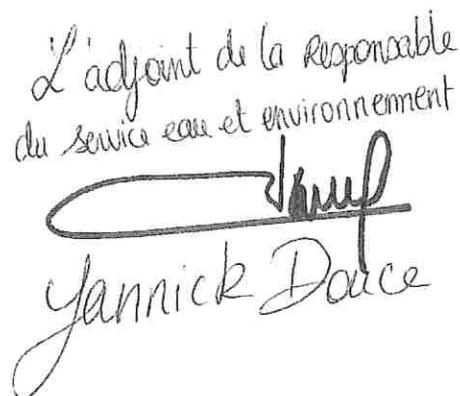 L'adjoint de la Responsable
du service eau et environnement
Yannick Douce